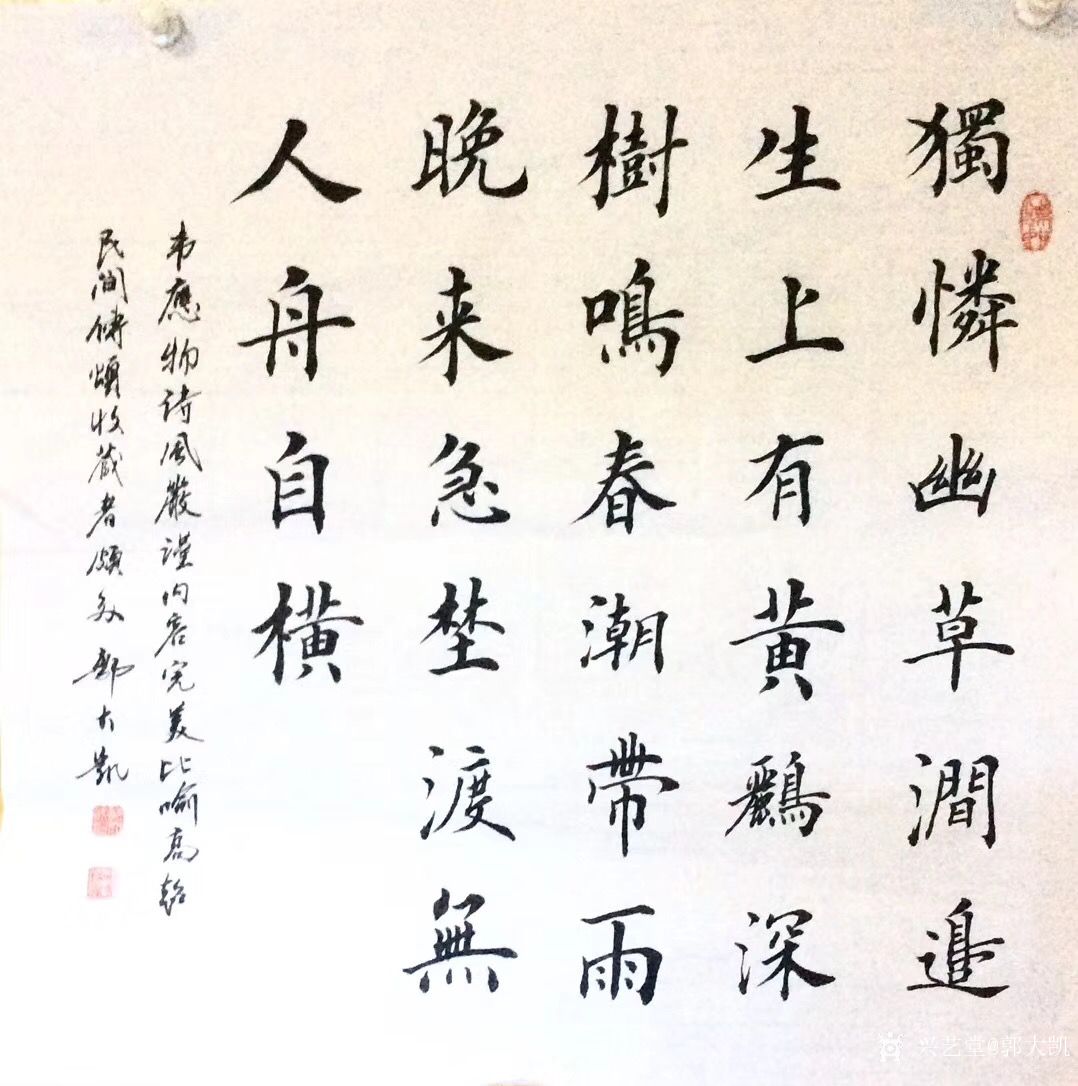 獨憐幽草澗邉
生上有黄鸝深
樹鳴春潮帶雨
晚来急埜渡無
人舟自横
韦應物诗风嚴谨内容完美比喻高超
民间傳頌收藏者頗多 郭大凱
兴艺堂@郭大凯